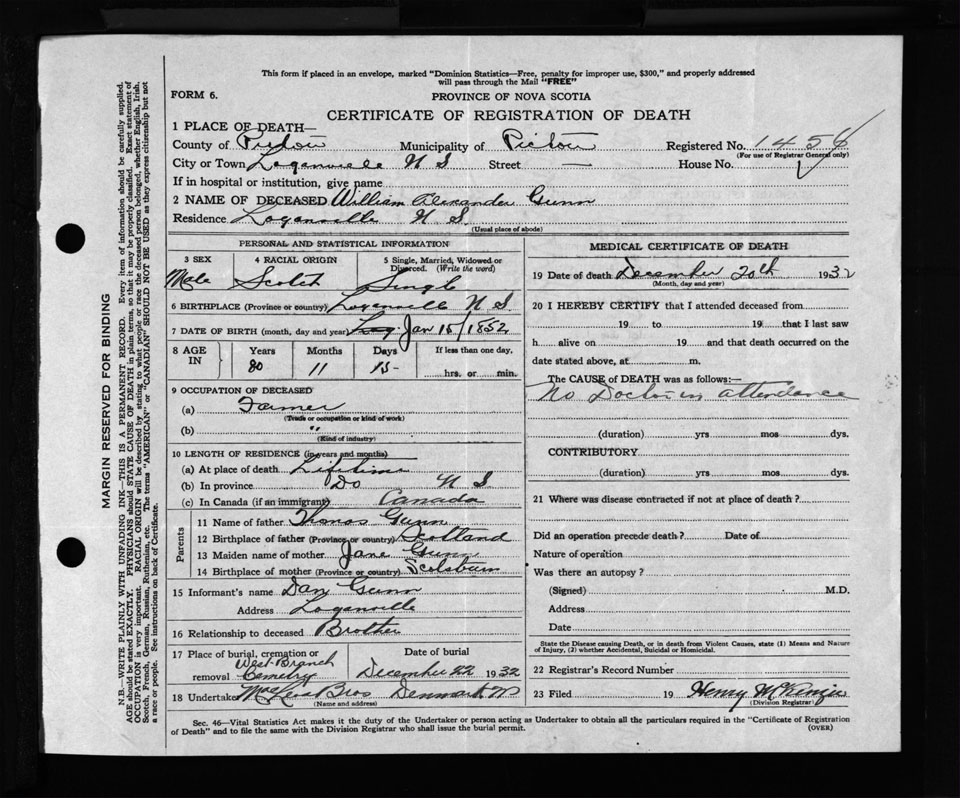 This form if placed in an envelope, marked "Dominion Statistics—Free, penalty for improper use, $300," and properly addressed
will pass through the Mail "FREE"
FORM 6.
PROVINCE OF NOVA SCOTIA
CERTIFICATE OF REGISTRATION OF DEATH
1 PLACE OF DEATH—
County of Pictou Municipality of Pictou Registered No. 1456
(For use of Registrar General only)
City or Town Loganville N S Street — House No.
If in hospital or institution, give name
2 NAME OF DECEASED William Alexander Gunn
Residence Loganville N S.
(Usual place of abode)
PERSONAL AND STATISTICAL INFORMATION
3 SEX 4 RACIAL ORIGIN 5 Single, Married, Widowed or Divorced. (Write the word)
Male Scotch Single
6 BIRTHPLACE (Province or country) Loganville N S.
7 DATE OF BIRTH (month, day and year) Jan 15/1852
8 AGE IN Years Months Days If less than one day,
80 11 15 hrs. or min.
9 OCCUPATION OF DECEASED
(a) Farmer
(Trade or occupation or kind of work)
(b) "
(Kind of industry)
10 LENGTH OF RESIDENCE (in years and months)
(a) At place of death Lifetime
(b) In province Do N S
(c) In Canada (if an immigrant) Canada
Parents
11 Name of father Thomas Gunn
12 Birthplace of father (Province or country) Scotland
13 Maiden name of mother Jane Gunn
14 Birthplace of mother (Province or country)
15 Informant's name Dan Gunn
Address Loganville
16 Relationship to deceased Brother
17 Place of burial, cremation or removal Date of burial
West Branch
Cemetry December 22 1932
18 Undertaker Bros Denmark
(Name and address)
MEDICAL CERTIFICATE OF DEATH
19 Date of death December 20th 1932
(Month, day and year)
20 I HEREBY CERTIFY that I attended deceased from
19 to 19 that I last saw
h alive on 19 and that death occurred on the
date stated above, at m.
The CAUSE of DEATH was as follows:—
No Doctor in attendance
(duration) yrs mos dys.
CONTRIBUTORY
(duration) yrs. mos. dys.
21 Where was disease contracted if not at place of death?
Did an operation precede death? Date of
Nature of operation
Was there an autopsy?
(Signed) M.D.
Address
Date
State the Disease causing Death, or in death from Violent Causes, state (1) Means and Nature
of Injury, (2) whether Accidental, Suicidal or Homicidal.
22 Registrar's Record Number
23 Filed 19 Henry McKenzie
(Division Registrar)
Sec. 46—Vital Statistics Act makes it the duty of the Undertaker or person acting as Undertaker to obtain all the particulars required in the "Certificate of Registration
of Death" and to file the same with the Division Registrar who shall issue the burial permit. (OVER)
MARGIN RESERVED FOR BINDING
N.B.—WRITE PLAINLY WITH UNFADING INK—THIS IS A PERMANENT RECORD. Every item of information should be carefully supplied.
AGE should be stated EXACTLY. PHYSICIANS should STATE CAUSE OF DEATH in plain terms, so that it may be properly classified. Exact statement of
OCCUPATION is very important. RACIAL ORIGIN will be described by stating to what people or race the deceased person belonged, whether English, Irish,
Scotch, French, German, Russian, Ruthenian, etc. The terms "AMERICAN" or "CANADIAN" SHOULD NOT BE USED as they express citizenship but not
a race or people. See instructions on back of Certificate.